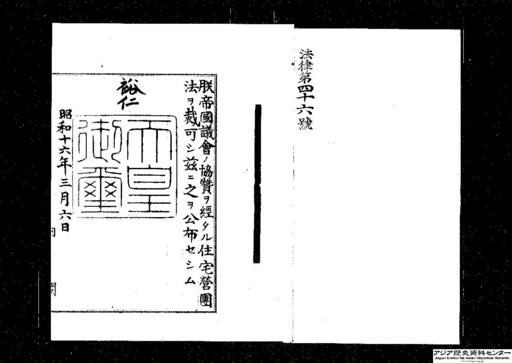 法律第四十六號
朕帝國議會ノ協贊ヲ經タル住宅營團
法ヲ裁可シ茲ニ之ヲ公布セシム
裕仁
天皇
御璽
昭和十六年三月六日
アジア歴史資料センター
Japan Center for Asian Historical Records